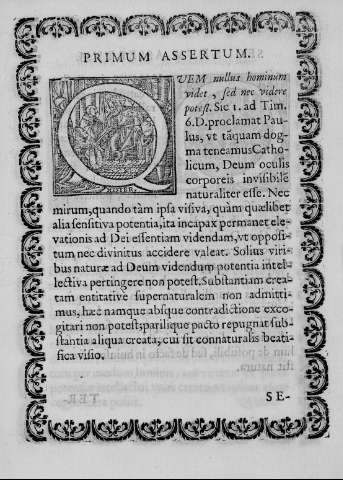 PRIMUM ASSERTUM.
QUEM nullus hominum
videt, sed nec videre
potest. Sic 1. ad Tim.
6. D. proclamat Pau-
lus, vt tãquam dog-
ma teneamus Catho-
licum, Deum oculis
corporeis invisibilẽ
naturaliter esse. Nec
mirum, quando tàm ipsa visiva, quàm quælibet
alia sensitiva potentia, ita incapax permanet ele-
vationis ad Dei essentiam videndam, vt opposi-
tum nec divinitus accidere valeat. Solius viri-
bus naturæ ad Deum videndum potentia intel-
lectiva pertingere non potest. Substantiam crea-
tam entitative supernaturalem non admitti-
mus, hæc namque absque contradictione exco-
gitari non potest; parilique pacto repugnat sub-
stantia aliqua creata, cui sit connaturalis beati-
fica visio.
SE-